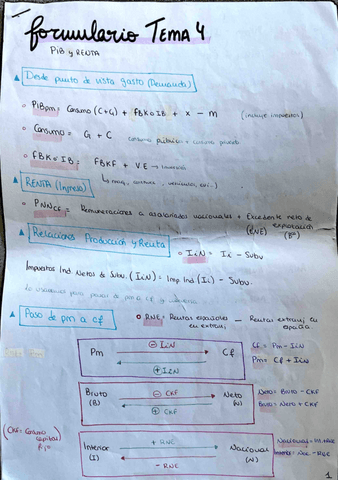 formulario TEMA 4
PIB y RENTA
Desde punto de vista gasto (Demanda)
PIBpm = Consumo (C+G) + FBK o IB + X - M (incluye impuestos)
Consumo = G + C
consumo público + consumo privado
FBK o IB = FBKF + VE → inventarios
RENTA (Ingreso)
PNNcf = Remuneraciones a asalariados nacionales + Excedente neto de explotación
(RNE) (Bº)
Relaciones Producción y Renta
IiN = Ii - Subv
Impuestos Ind. Netos de Subv. (IiN) = Imp Ind (Ii) - Subv.
Lo usaremos para pasar de pm a cf y viceversa
Paso de pm a cf
RNE = Rentas españolas en extranj - Rentas extranj en españa
Pm ⊖ IiN Cf
⊕ IiN
Cf = Pm - IiN
Pm = Cf + IiN
Bruto (B) ⊖ CKF Neto (N)
⊕ CKF
Neto = Bruto - CKF
Bruto = Neto + CKF
(CKF = Consumo capital fijo)
Interior (I) + RNE Nacional (N)
- RNE
Nacional = Int. + RNE
Interior = Nac - RNE
1